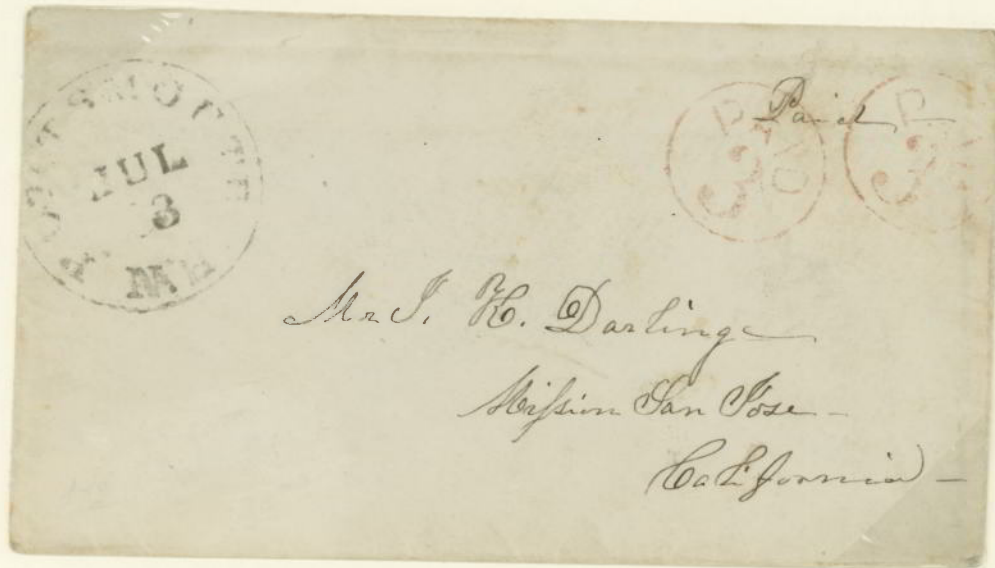 PORTSMOUTH
JUL
3
Paid
PAID
3
PAID
3
Mr J. H. Darling
Mission San Jose -
California -